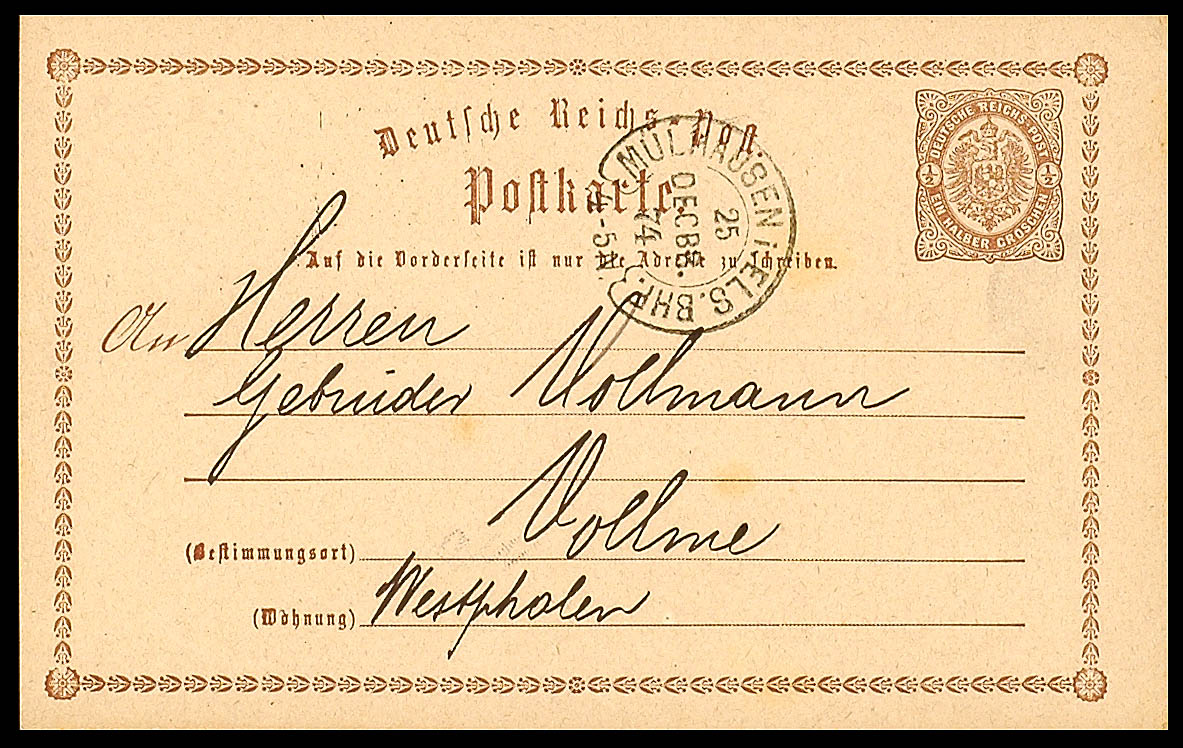 Deutsche Reichs-Post.
Postkarte.
Auf die Vorderseite ist nur die Adresse zu schreiben.
DEUTSCHE REICHS-POST
½ ½
EIN HALBER GROSCHEN
MÜLHAUSEN i/ELS. BHF.
25
DECBR.
74
4-5N.
An Herren
Gebrüder Vollmann
Vollme
(Bestimmungsort)
(Wohnung) Westphalen